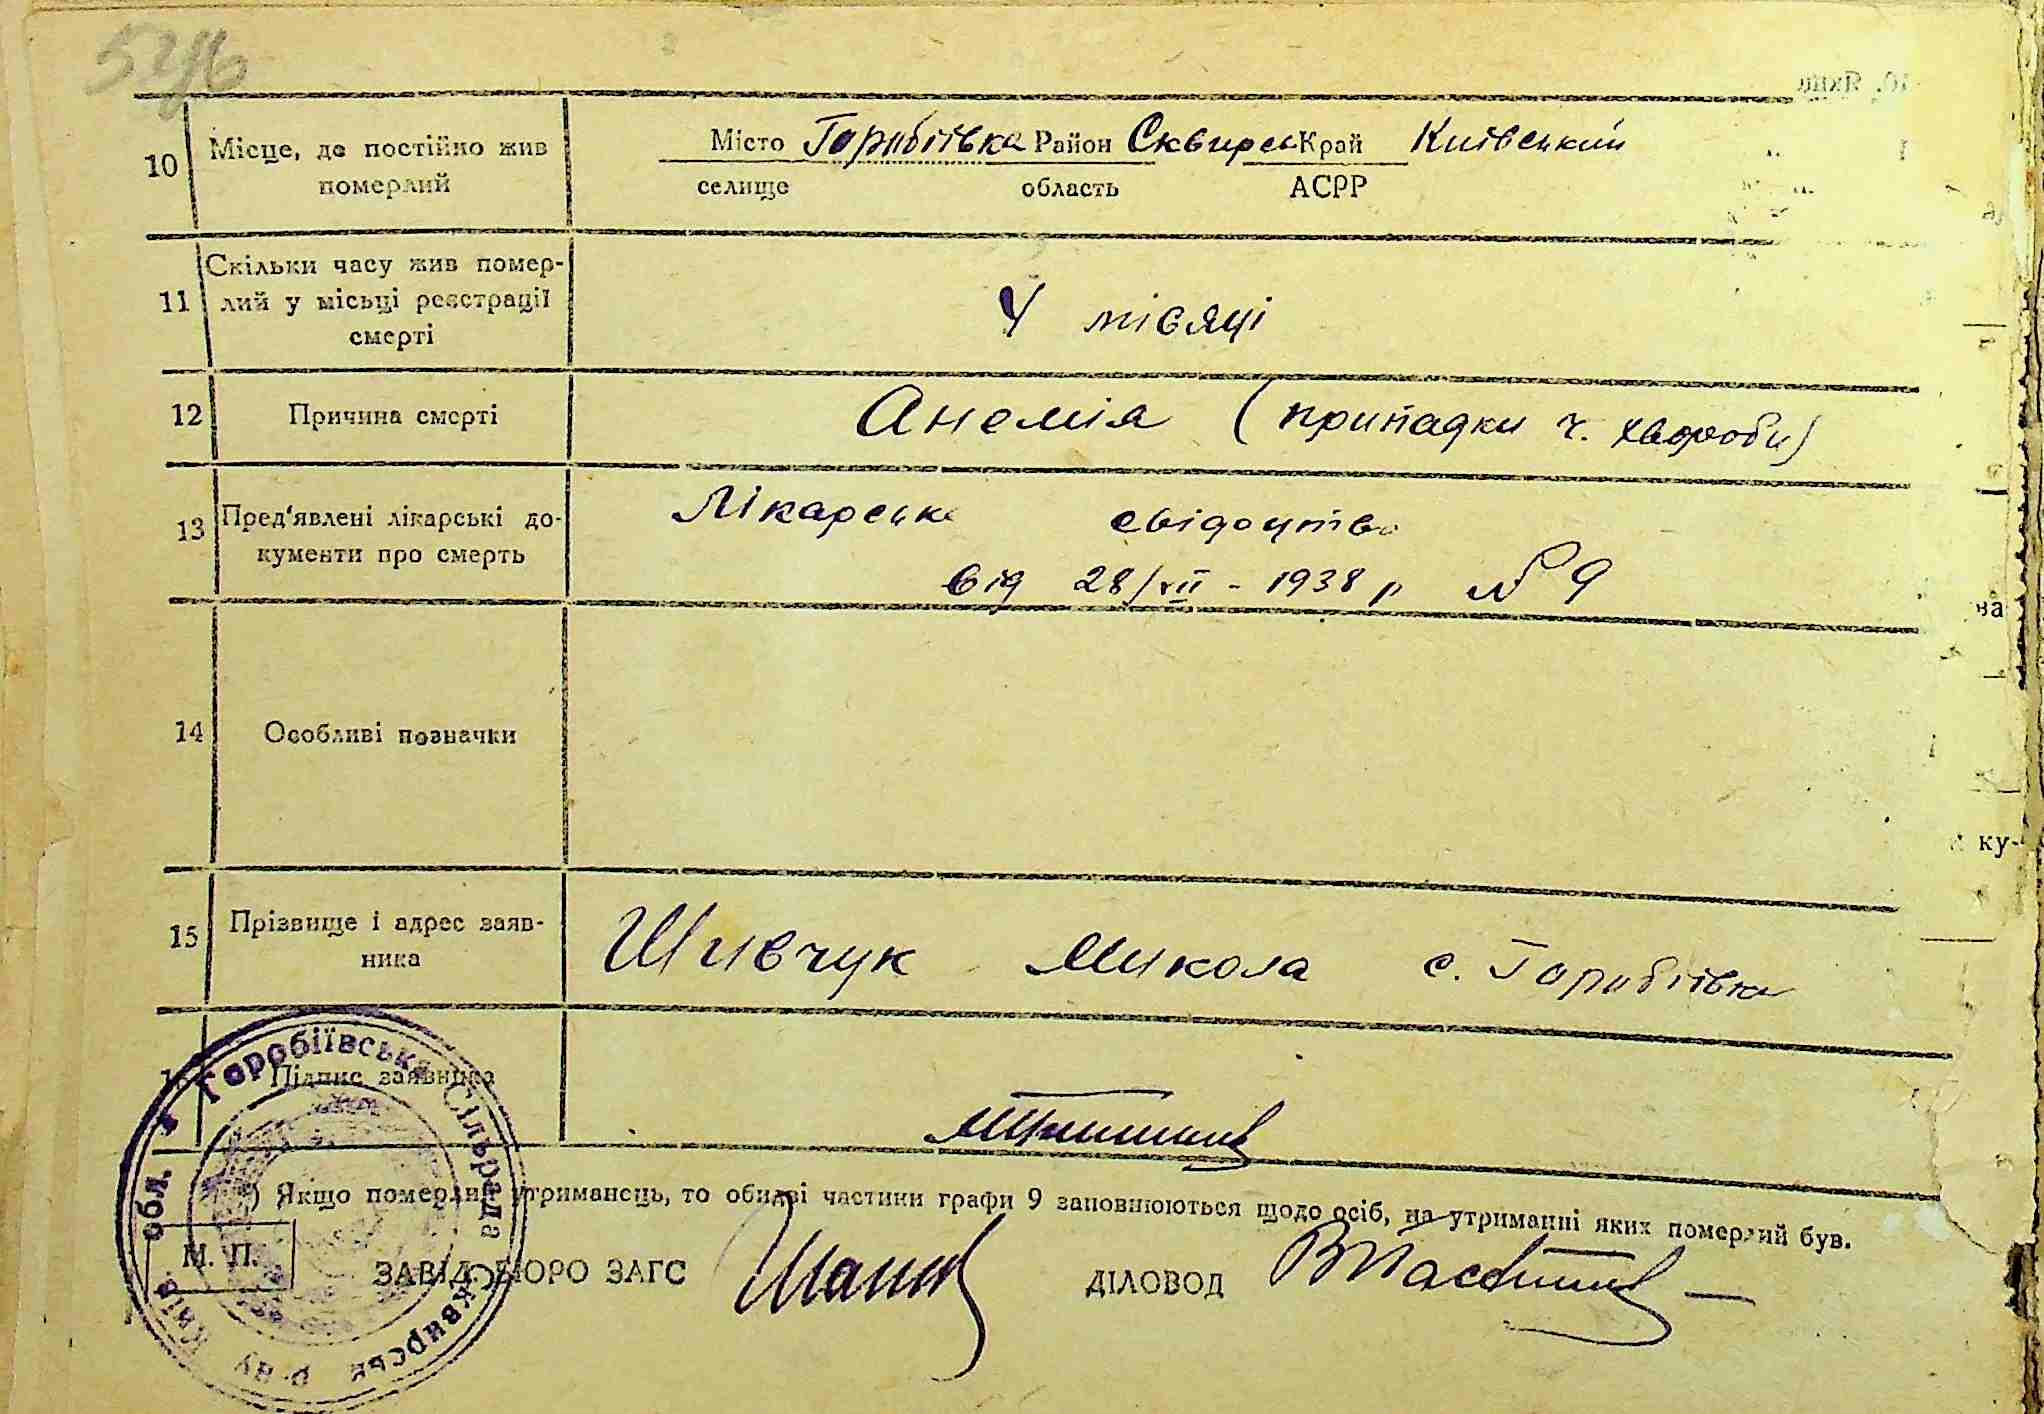 5246
10 Місце, де постійно жив померлий
Місто Горобіївка Район Сквирськ Край Київський
селище область АСРР
11 Скільки часу жив помер-
лий у місьці реєстрації
смерті
4 місяці
12 Причина смерті
Анемія (припадки ч. хвороби)
13 Пред'явлені лікарські до-
кументи про смерть
Лікарське свідоцтво
від 28/VII - 1938 р № 9
14 Особливі позначки
15 Прізвище і адрес заяв-
ника
Шивчук Микола с. Горобіївка
Підпис заявника
) Якщо померлий утриманець, то обидві частини графи 9 заповнюються щодо осіб, на утриманні яких померлий був.
М. П.
ЗАВІД. БЮРО ЗАГС
ДІЛОВОД
Горобіївська Сільрада Сквирськ р-ну Київ. обл.
на
ку-